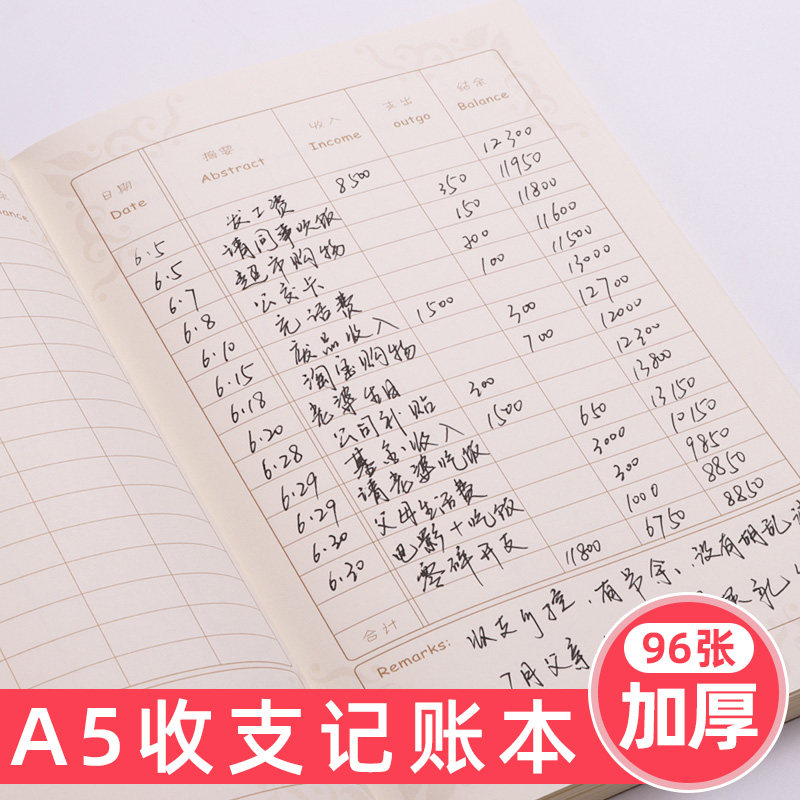 日期 摘要 收入 支出 结余
Date Abstract Income outgo Balance
6.5 发工资 8500 12300
6.5 请同事吃饭 350 11950
6.7 超市购物 150 11800
6.8 公交卡 200 11600
6.10 充话费 100 11500
6.15 废品收入 1500 13000
6.18 淘宝购物 300 12700
6.20 老婆生日 700 12000
6.28 公司补贴 300 12300
6.29 基金收入 1500 13800
6.29 请老婆吃饭 650 13150
6.30 父母生活费 3000 10150
6.30 电影+吃饭 300 9850
零碎开支 1000 8850
合计 11800 6750 8850
Remarks: 收支可控、有节余、没有胡乱
7月父亲
96张
加厚
A5收支记账本